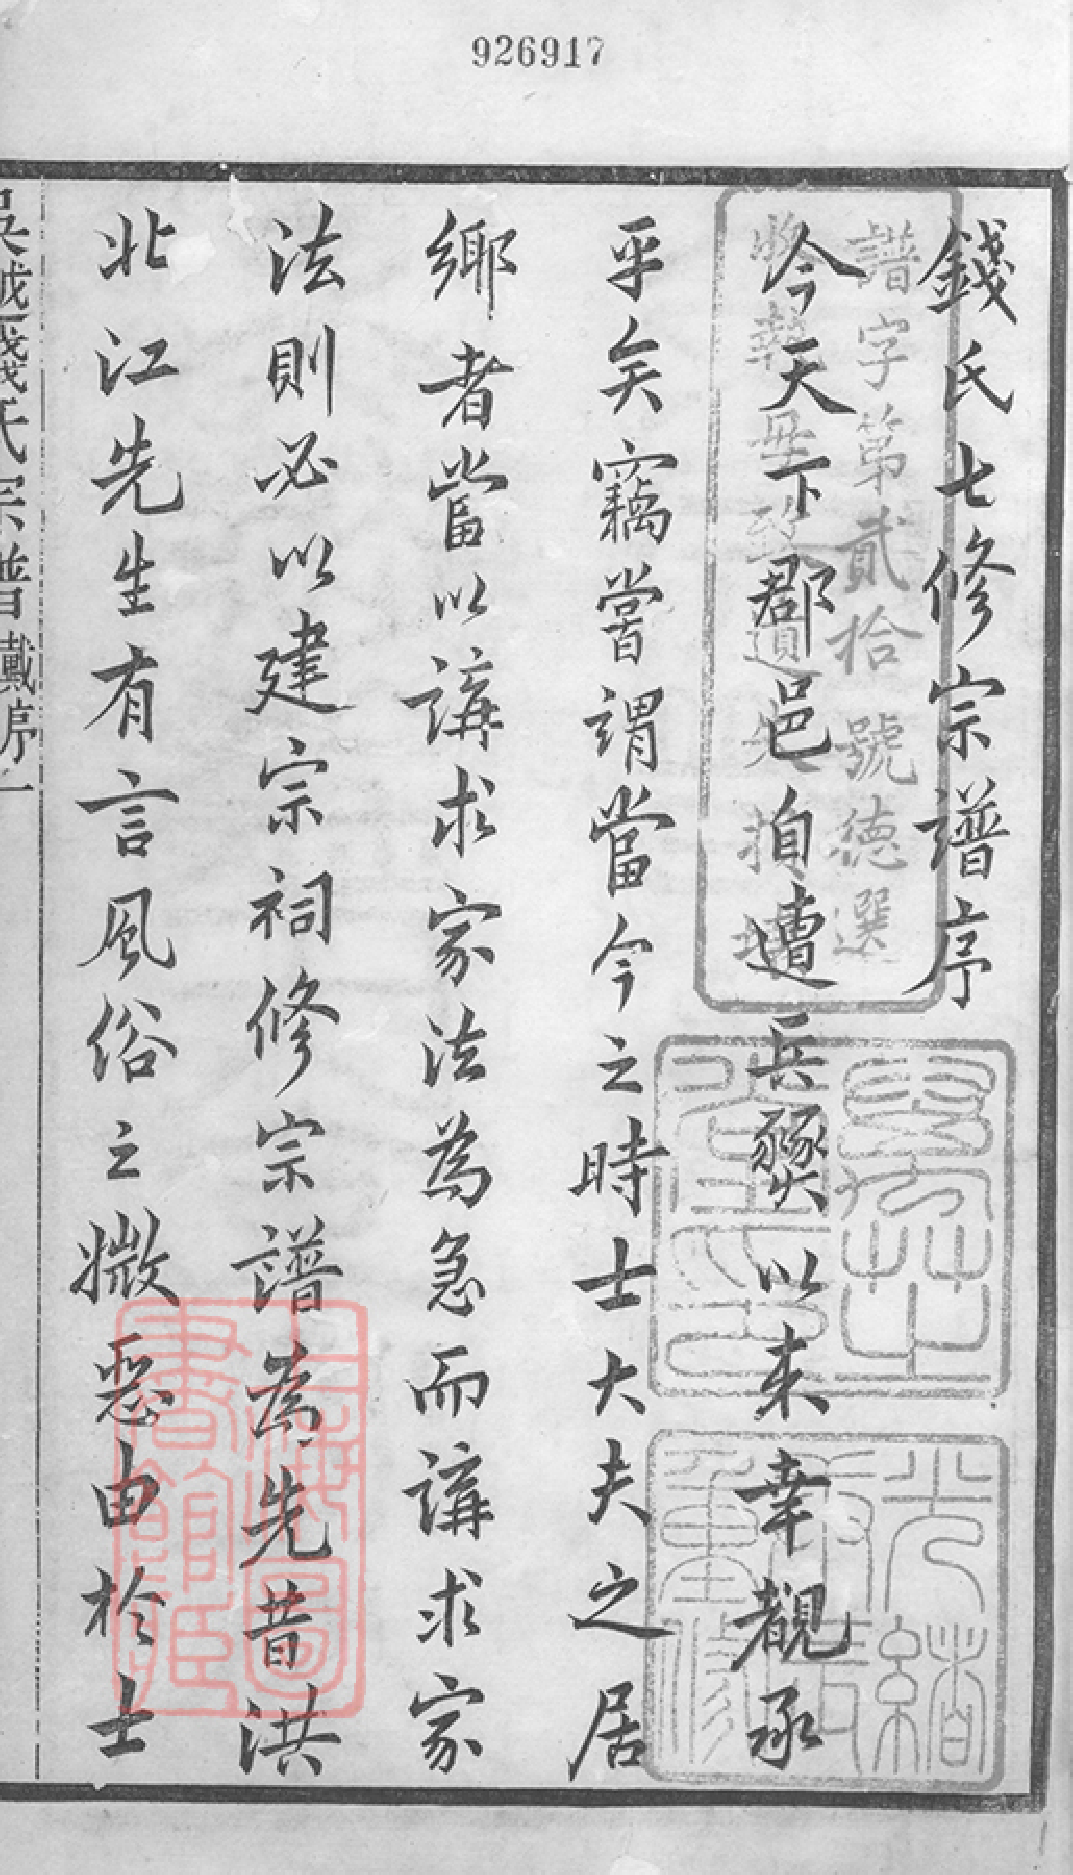 926917
錢氏七修宗譜序
今天下郡邑自遭兵燹以来幸覩承
平矣竊嘗謂當今之時士大夫之居
鄉者當以講求家法為急而講求家
法則必以建宗祠修宗譜為先昔洪
北江先生有言風俗之媺惡由於士
吳越錢氏宗譜 戴序 一
譜字第貳拾號德選
上海圖書館藏
光緒
重修